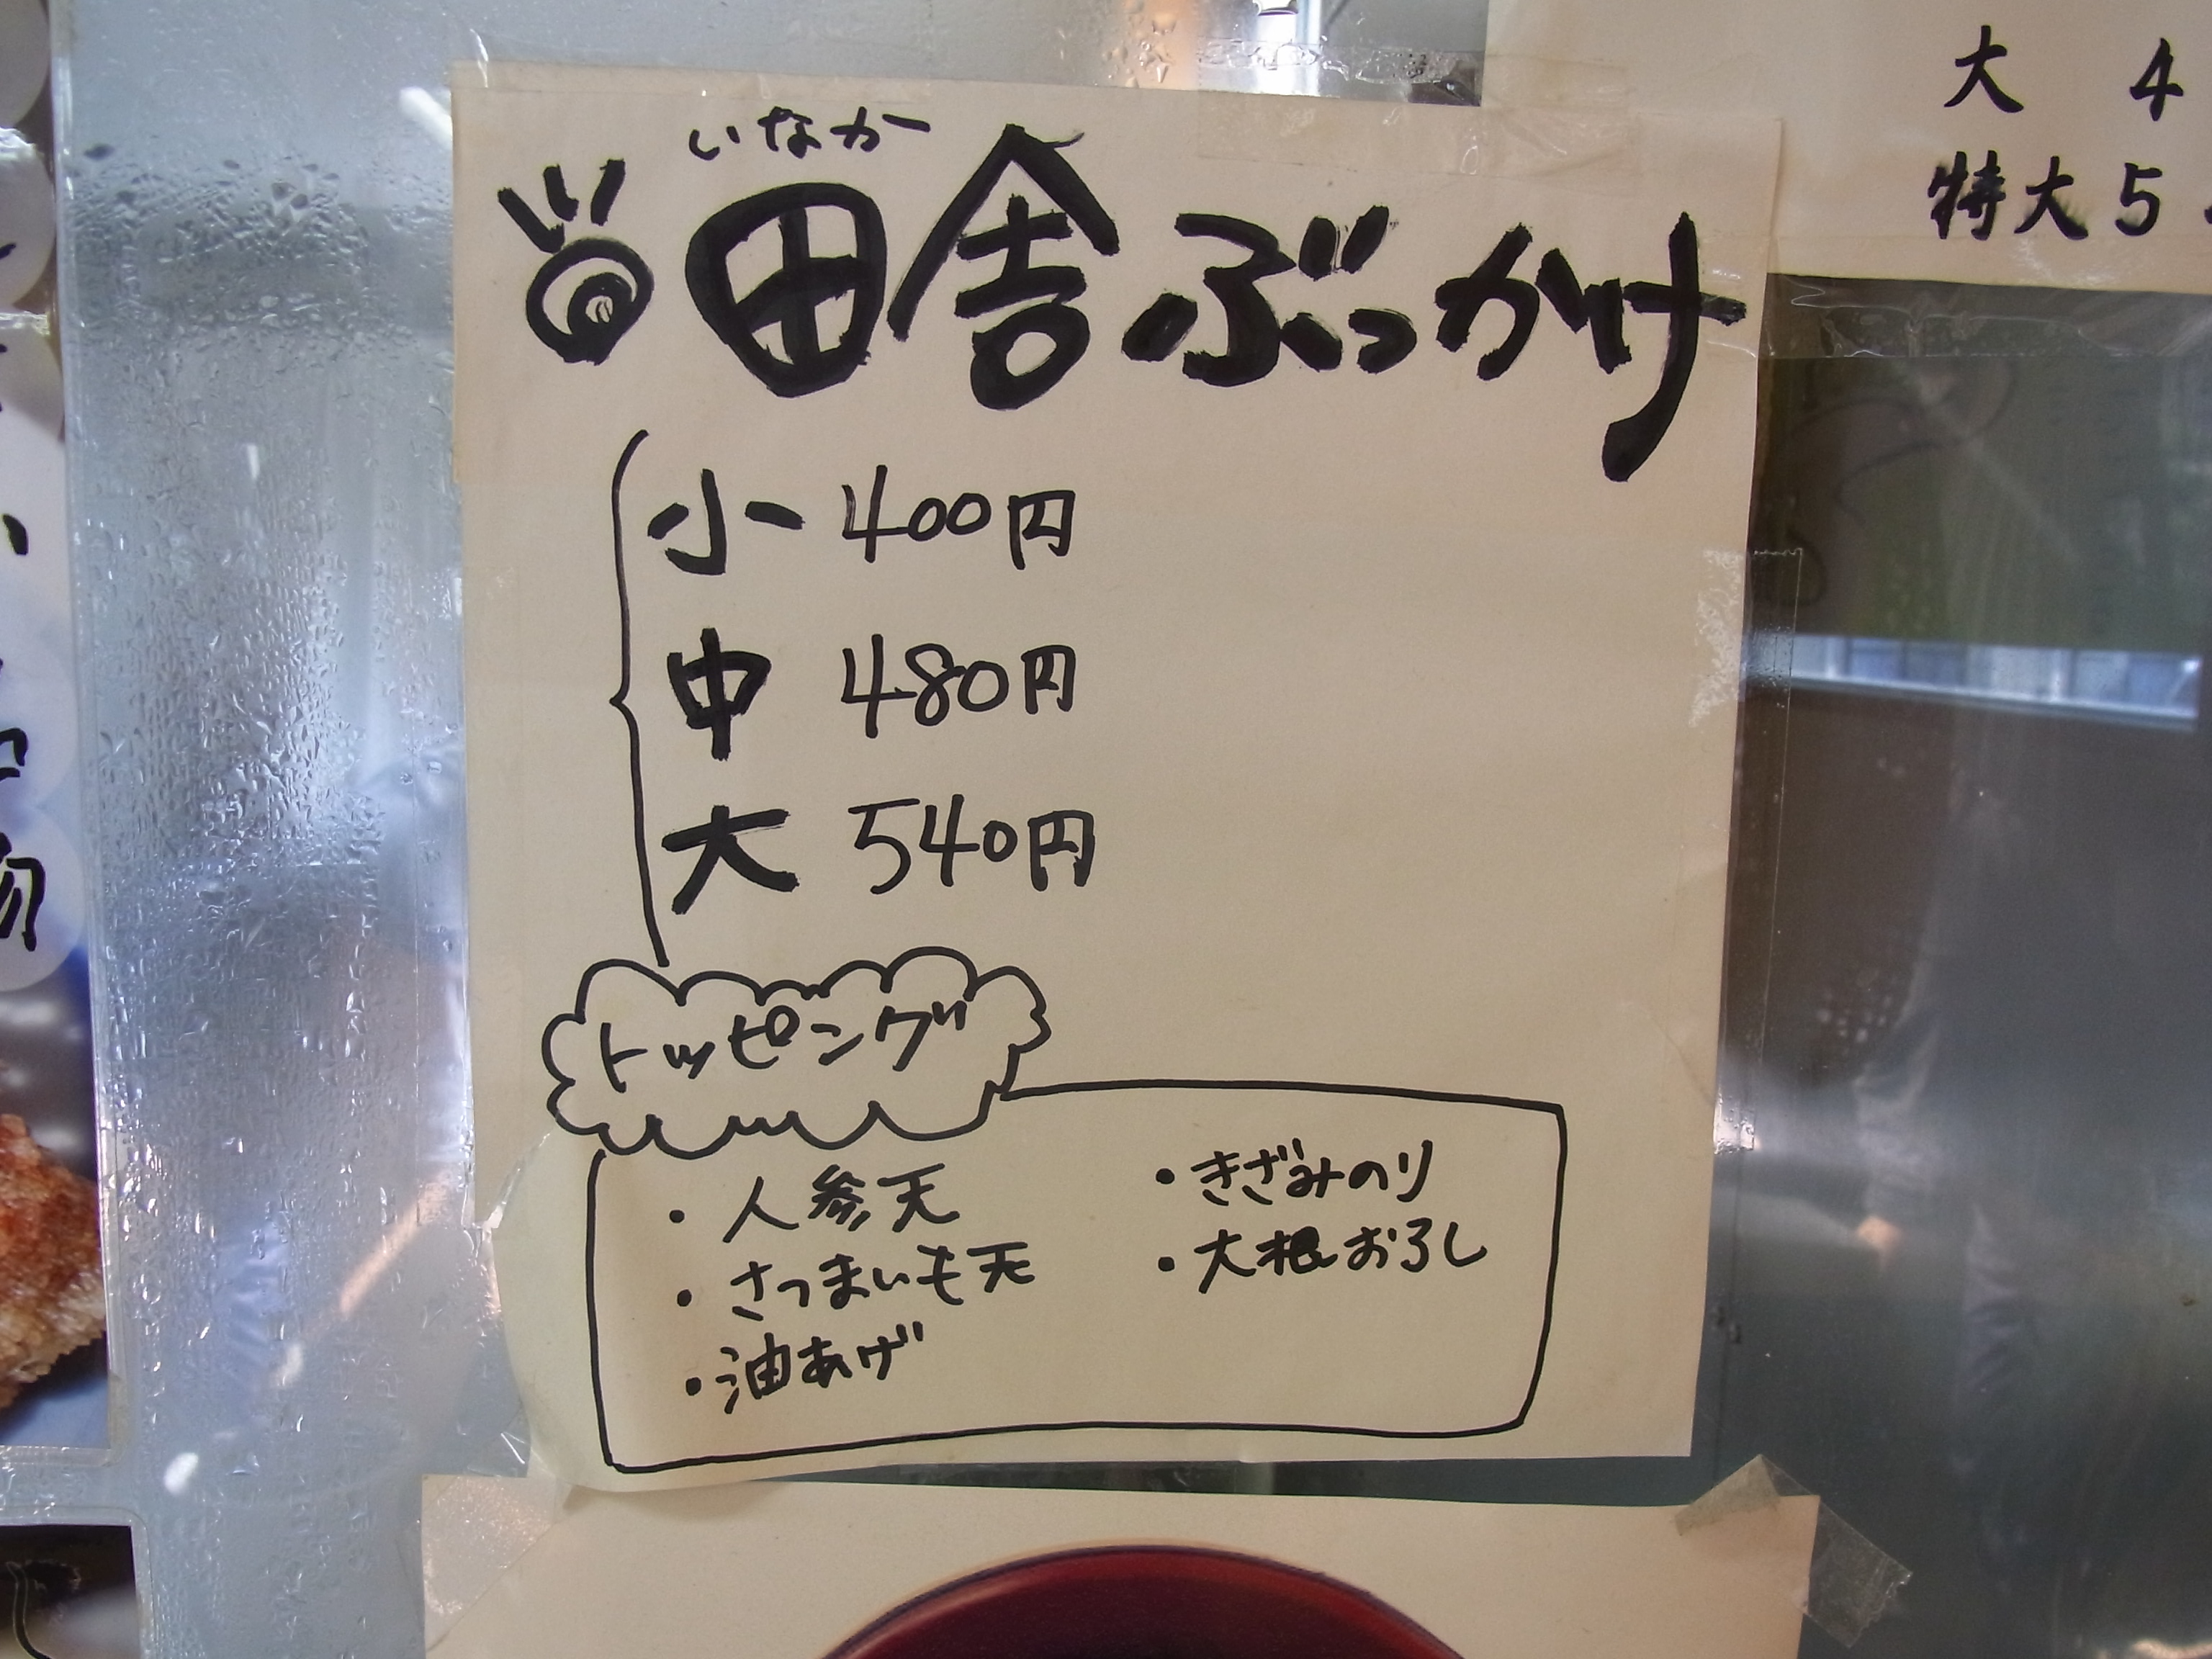 いなか
田舎ぶっかけ
小 400円
中 480円
大 540円
トッピング
・人参天
・さつまいも天
・油あげ
・きざみのり
・大根おろし
大 4
特大 5